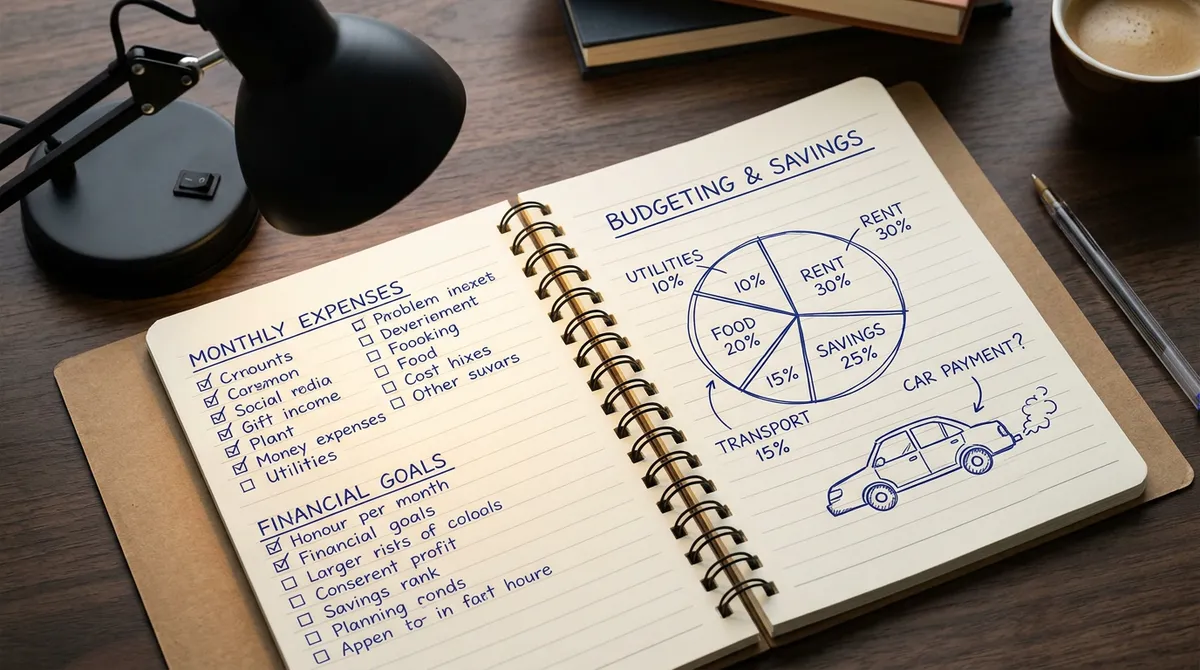 MONTHLY EXPENSES
Crnounts
Carsmon
Social rodia
Gift income
Plant
Money expenses
Utilities
Problem inexet
Deveriement
Foooking
Food
Cost hixes
Other suvars
FINANCIAL GOALS
Honour per month
Financial goals
Larger rists of coloals
Conserent profit
Savings rank
Planning conds
Appen to in fart houre
BUDGETING & SAVINGS
RENT
30%
UTILITIES
10%
10%
RENT
30%
FOOD
20%
SAVINGS
25%
15%
TRANSPORT
15%
CAR PAYMENT?